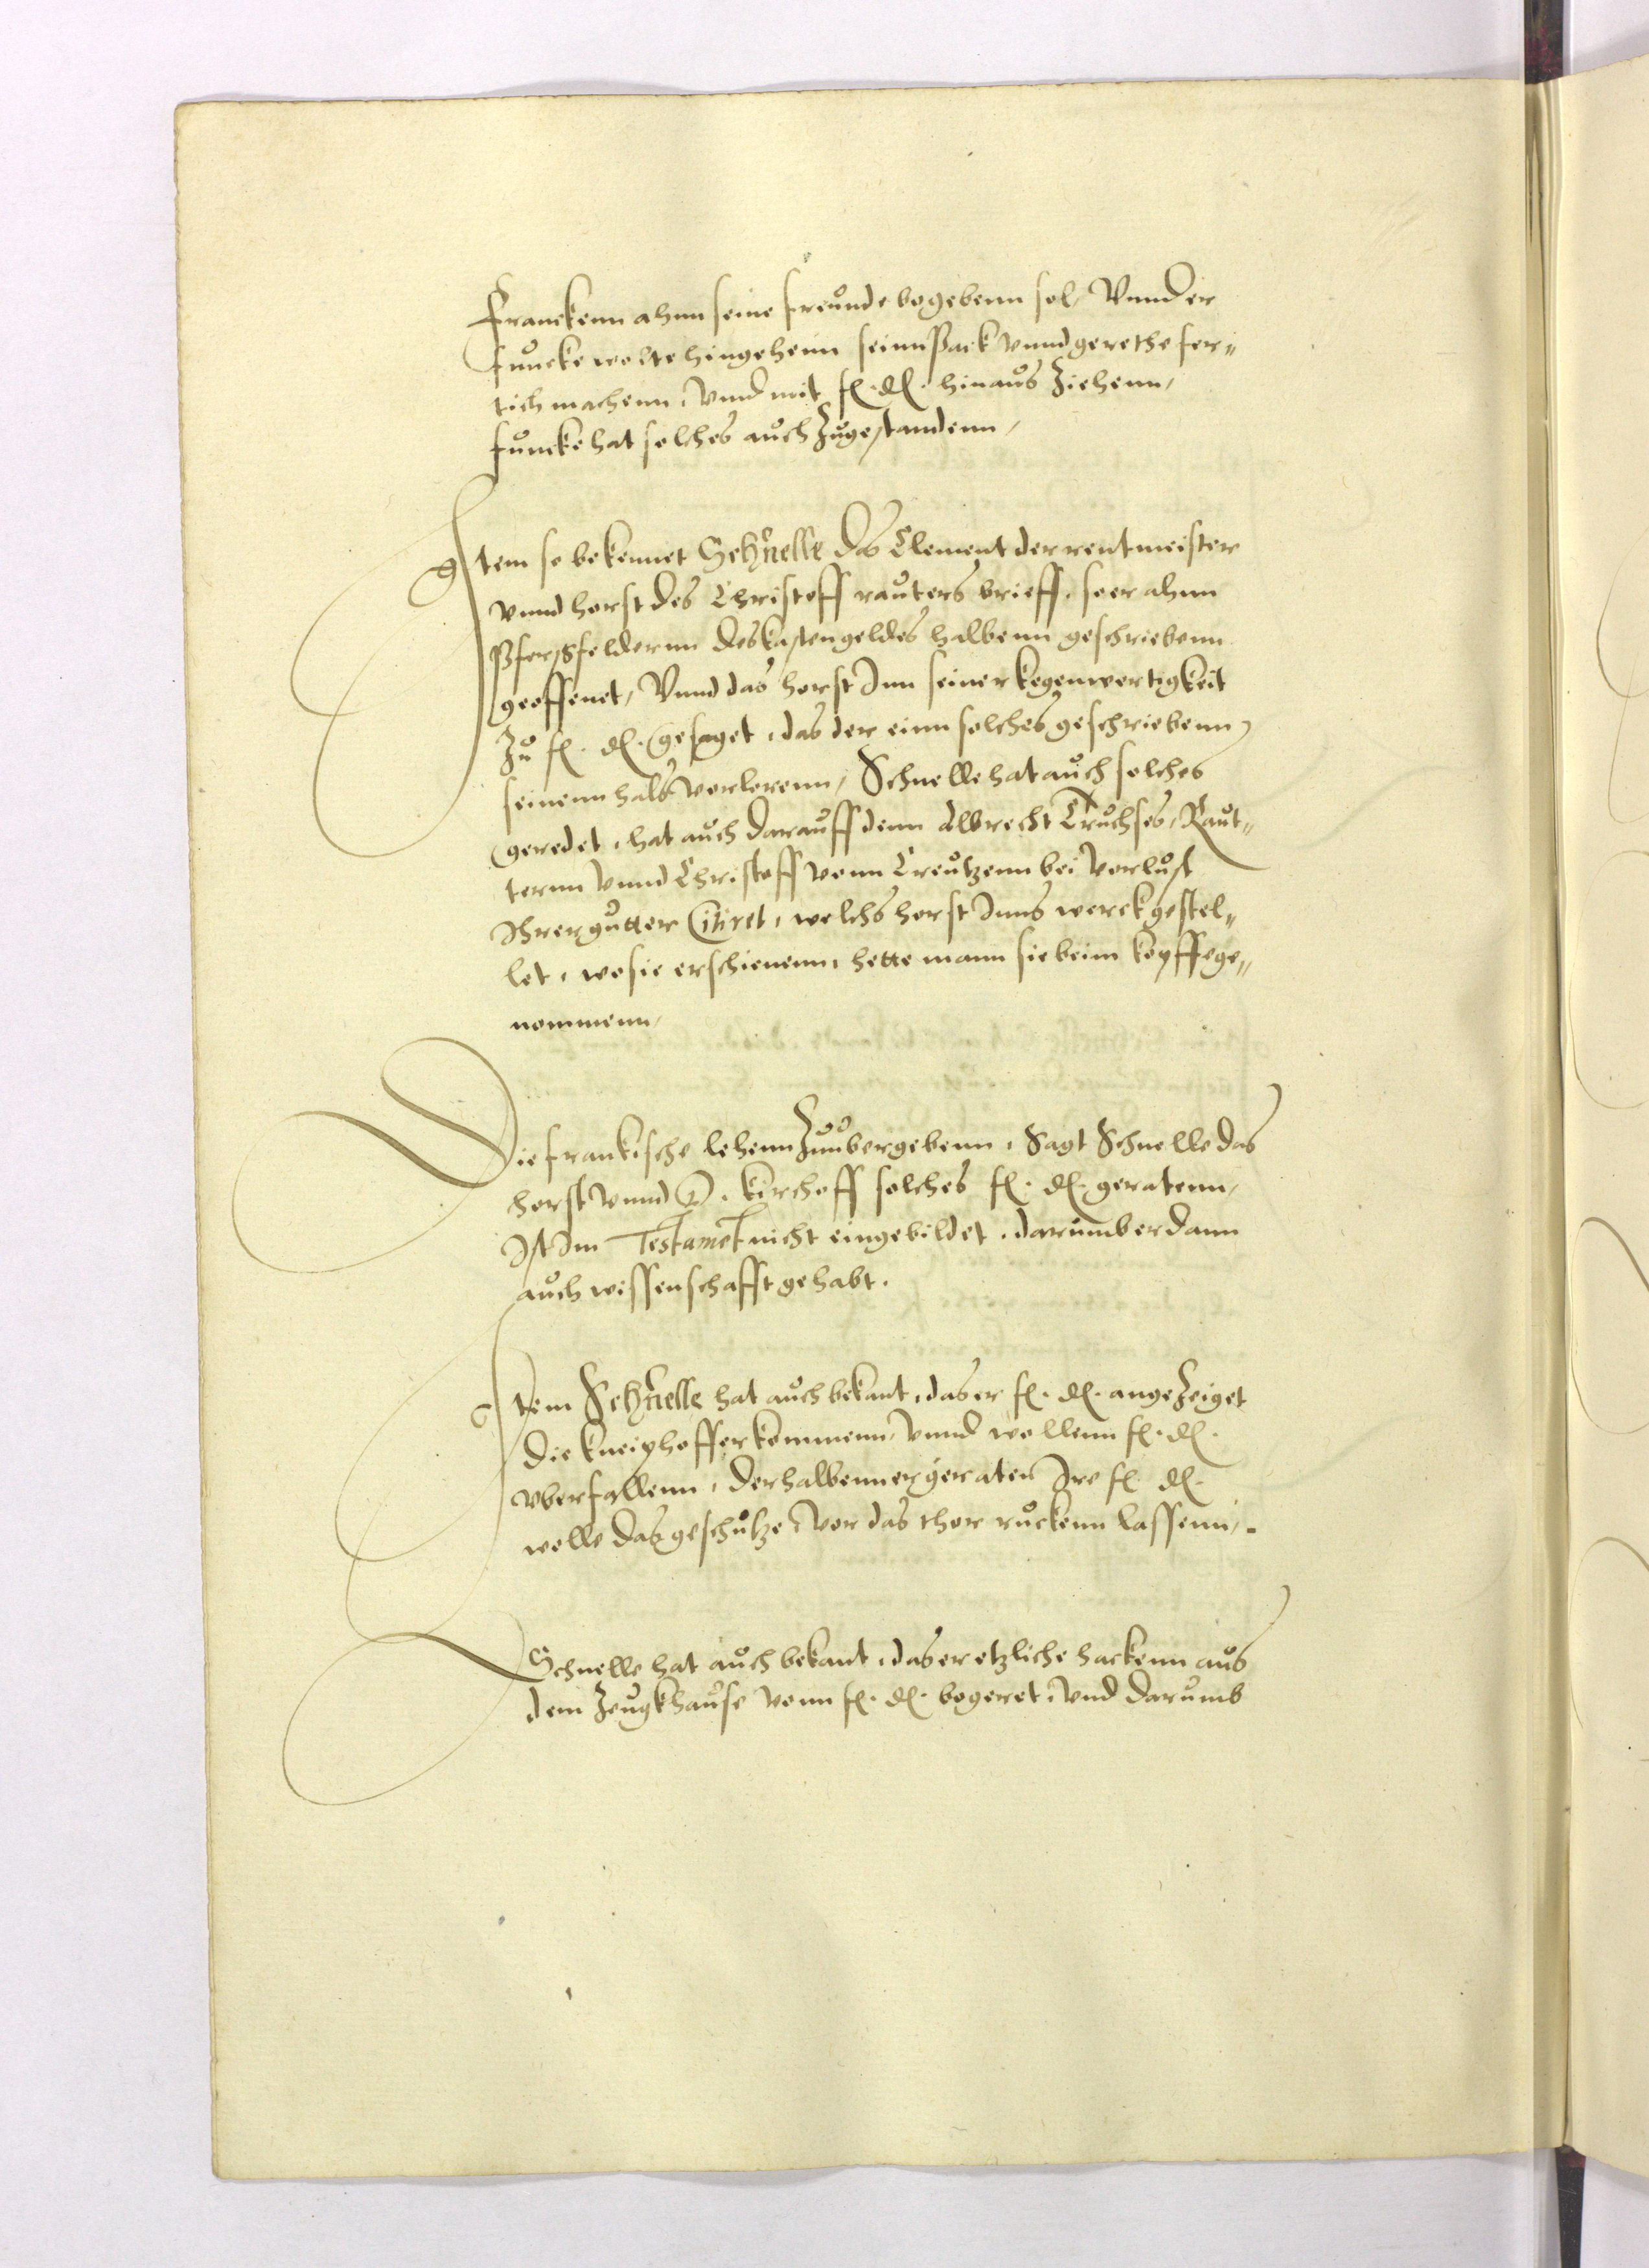 Franckenn ahnn seine freunde begebenn sol, Vnnd er
funcke wolte hingehenn seinn Pack vnnd gerethe fer„
tich machenn, Vnnd mit f. d. hinaus Ziehenn,
funcke hat solches auch Zugestandenn,
Item so bekennet Schnelle das Clement der rentmeister
vnnd horst des Christoff rauters brieff, so er ahnn
Pfersfeldernn des kastengeldes halbenn geschriebenn
geoffenet, Vnnd das horst Inn seiner kegenwertigkeit
Zu f. d. gesaget, das der einn solches geschriebenn
seinenn hals verlorenn, Schnelle hat auch solches
geredet, hat auch darauff denn Albrecht Truchses, Raut„
ternn vnnd Christoff vonn Creutzenn bei Verlust
Ihrer gutter Citiret, welchs horst Inns werck gestel„
let, wo sie erschienenn, hette mann sie beim kopffe ge„
nommenn,
Die frankische lehenn Zuubergebenn, Sagt Schnelle das
horst vnnd D. kirchoff solches f. d. geratenn,
Ist Im Testament nicht eingebildet, darumb er dann
auch wissenschafft gehabt.
Item Schnelle hat auch bekant, das er f. d. angeZeiget
die kneiphoffer kommenn, vnnd wollenn f. d.
vberfallenn, derhalbenn er geraten Ire f. d.
wolle das geschutze vor das thor ruckenn lassenn,
Schnelle hat auch bekant, das er etzliche hackenn aus
dem Zeugkhause vonn f. d. begeret, vnd darumb